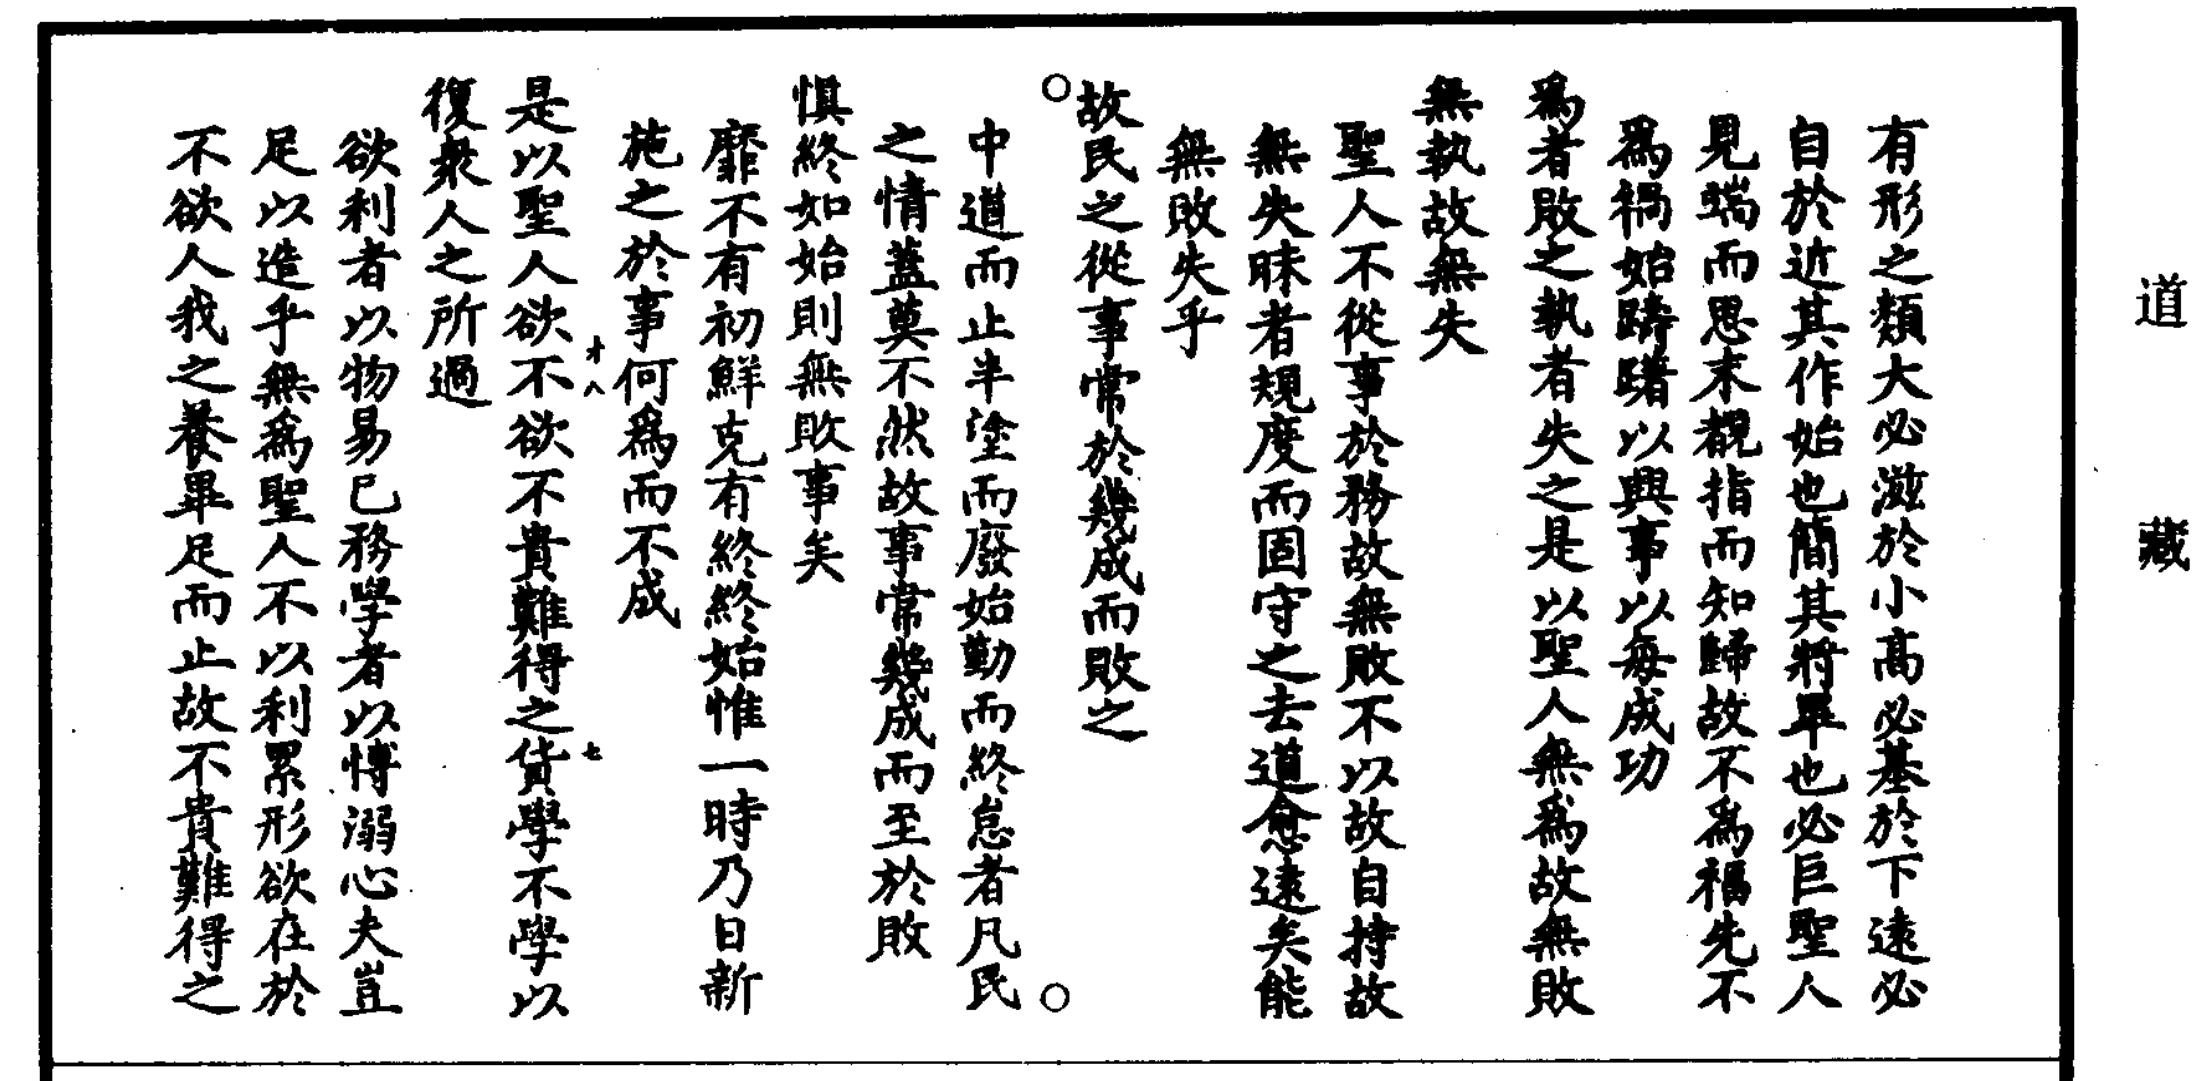 道藏
有形之類大必滋於小高必基於下遠必
自於近其作始也簡其將畢也必巨聖人
見端而思末覩指而知歸故不爲福先不
爲禍始躊躇以興事以每成功
爲者敗之執者失之是以聖人無爲故無敗
無執故無失
聖人不從事於務故無敗不以故自持故
無失昧者規度而固守之去道愈遠矣能
無敗失乎
故民之從事常於幾成而敗之
○ ○
中道而止半塗而廢始勤而終怠者凡民
之情蓋莫不然故事常幾成而至於敗
慎終如始則無敗事矣
靡不有初鮮克有終終始惟一時乃日新
施之於事何爲而不成
是以聖人欲不欲不貴難得之貨學不學以
才八 七
復衆人之所過
欲利者以物易已務學者以愽溺心夫豈
足以造乎無爲聖人不以利累形欲在於
不欲人我之養畢足而止故不貴難得之